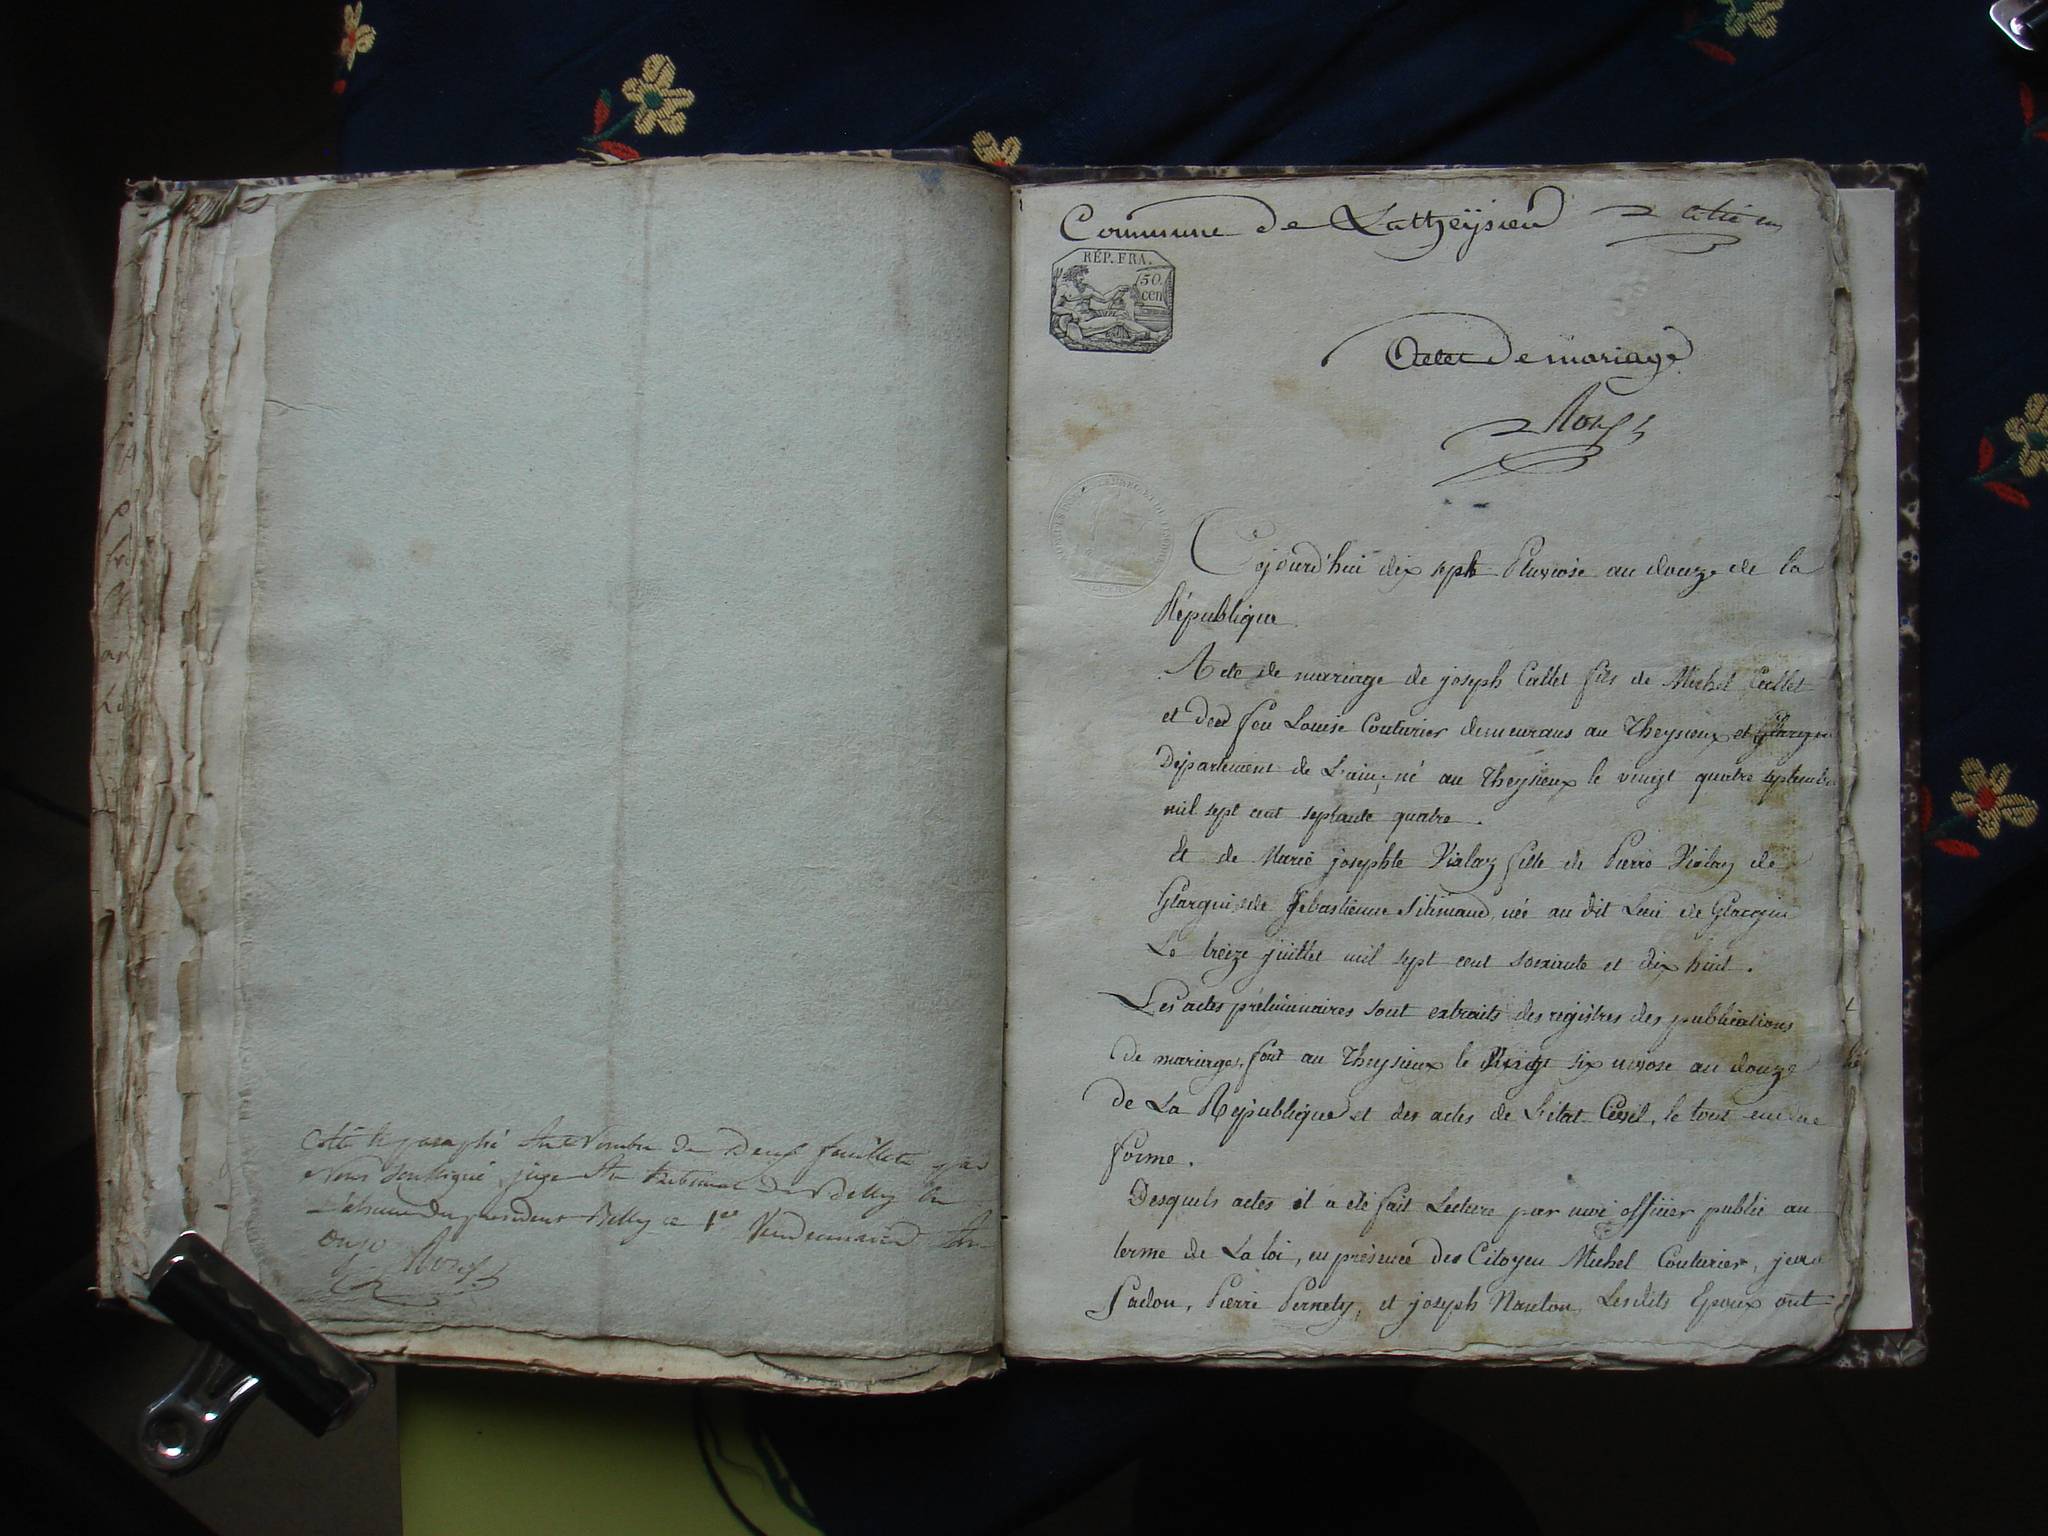 Cotté et paraphé Au Nombre de Deux feuillets par
Nous Soussigné juge Au tribunal de Belley En
L'absence du president Belley ce 1er Vendemiaire An
onze
Commune de Latheÿsieu
RÉP. FRA.
50
cen
Actes De mariage
Cejourd'hui dix sept Pluviose an douze de la
République
Acte de mariage de joseph Callet fils de Michel Callet
et de feu Louise Couturier demeurans au Theysieux et
Département de L'ain, né au Theysieux le vingt quatre septembre
mil sept cent septante quatre.
Et de Marie josephte Vialaz fille de Pierre Vialaz de
Glargin et de Sebastienne née au dit Lieu de Glargin
Le treize juillet mil sept cent soixante et dix huit.
Les actes préliminaires sont extraits des registres des publications
de mariages, fait au Theysieux le Vingt six nivose an douze
de La République et des actes de L'état Civil, le tout en due
forme.
Desquels actes il a été fait Lecture par moi officier public au
terme de La loi, en présence des Citoyen Michel Couturier, jean
Pierre Pernety, et joseph Nanton, Lesdits Epoux ont